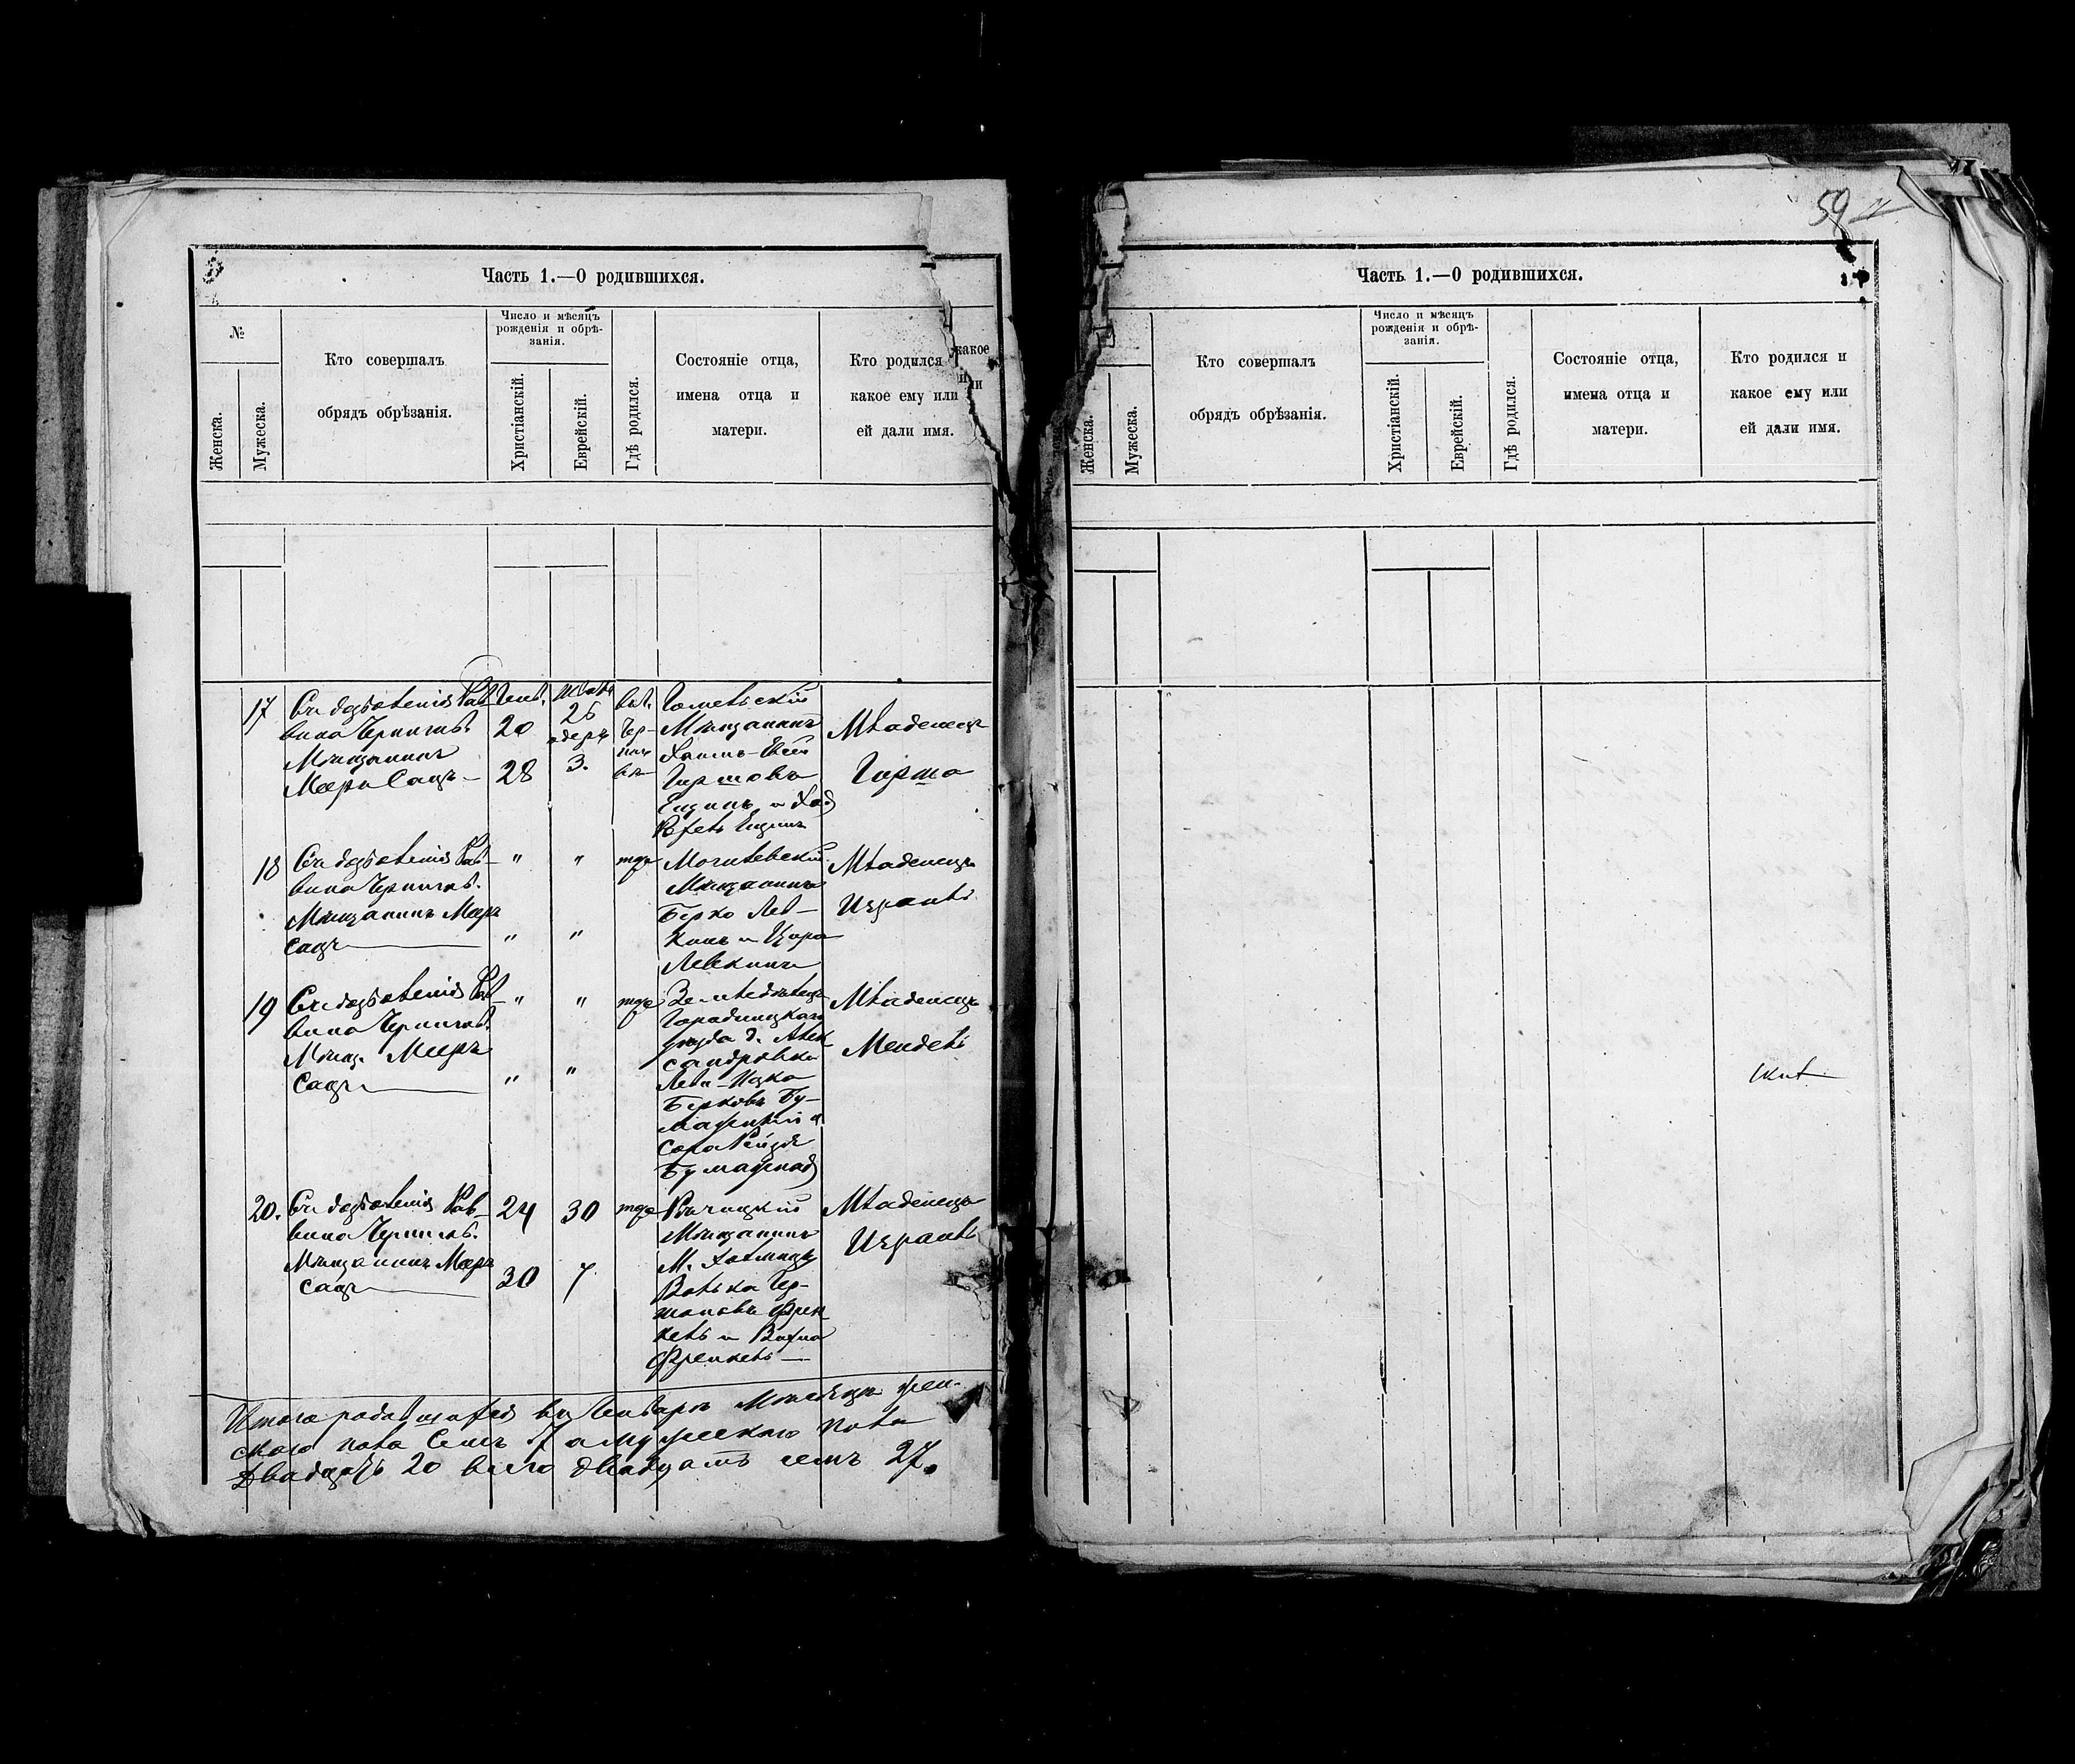 Часть 1.—О родившихся.
№
Женска.
Мужеска.
Кто совершалъ
обрядъ обрѣзанія.
Число и мѣсяцъ
рожденія и обрѣ-
занія.
Христіанскій.
Еврейскій.
Гдѣ родился.
Состояніе отца,
имена отца и
матери.
Кто родился и
какое ему или
ей дали имя.
17
Съ дозволенія Рав
вина Чернигов.
Мѣщанинъ
Мееръ Сацъ
Генв.
20
28
26
адеръ
3.
Чер-
ниг
Гомельскій
Мѣщанинъ
Гиршовъ
Младенецъ
Гирша
18
Съ дозволенія Рав-
вина Чернигов.
Мѣщанинъ Мееръ
Сацъ
" "
" "
тдо
Могилевскій
Мѣщанинъ
Берко Лев-
кинъ и Цора
Левкинъ
Младенецъ
Израиль
19
Съ дозволенія Рав-
вина Чернигов.
Мѣщ. Мееръ
Сацъ
" "
" "
тдо
Земледѣлецъ
Городницкаго
уѣзда д. Алек
сандровка
Лейб-Ицка
Берковъ Бу-
Сора
Младенецъ
Мендель
20.
Съ дозволенія Рав-
вина Чернигов.
Мѣщанинъ Мееръ
Сацъ
24 30
30 7
тдо
Рѣчицкій
Мѣщанинъ
М. Холмичъ
Френ
кель и
Френкель
Младенецъ
Израиль
Итого родившихся въ Генварѣ Мѣсяцѣ жен-
скаго пола Семь 7 а мужескаго пола
Двадцать 20 всего двадцать семь 27.
59
Часть 1.—О родившихся.
Женска.
Мужеска.
Кто совершалъ
обрядъ обрѣзанія.
Число и мѣсяцъ
рожденія и обрѣ-
занія.
Христіанскій.
Еврейскій.
Гдѣ родился.
Состояніе отца,
имена отца и
матери.
Кто родился и
какое ему или
ей дали имя.